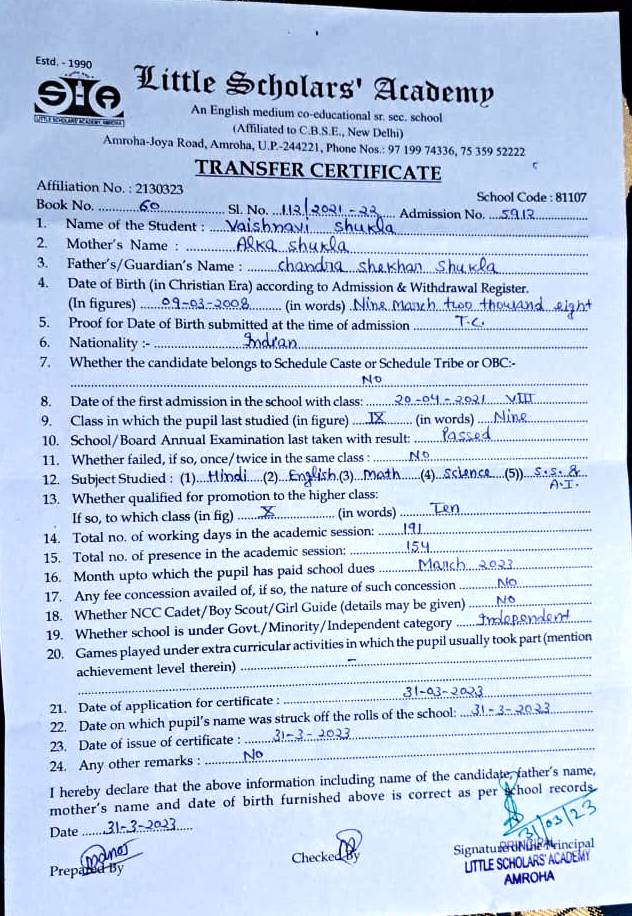 Estd. - 1990
SHA
LITTLE SCHOLARS' ACADEMY, AMROHA
Little Scholars' Academy
An English medium co-educational sr. sec. school
(Affiliated to C.B.S.E., New Delhi)
Amroha-Joya Road, Amroha, U.P.-244221, Phone Nos.: 97 199 74336, 75 359 52222
TRANSFER CERTIFICATE
Affiliation No. : 2130323 School Code : 81107
Book No. 60 Sl. No. 112/2021-22 Admission No. 5912
1. Name of the Student : Vaishnavi Shukla
2. Mother's Name : Alka Shukla
3. Father's/Guardian's Name : Chandra Shekhar Shukla
4. Date of Birth (in Christian Era) according to Admission & Withdrawal Register.
(In figures) 09-03-2008 (in words) Nine March two thousand eight
5. Proof for Date of Birth submitted at the time of admission T.C.
6. Nationality :- Indian
7. Whether the candidate belongs to Schedule Caste or Schedule Tribe or OBC:-
No
8. Date of the first admission in the school with class: 20-04-2021 VIII
9. Class in which the pupil last studied (in figure) IX (in words) Nine
10. School/Board Annual Examination last taken with result: Passed
11. Whether failed, if so, once/twice in the same class : No
12. Subject Studied : (1) Hindi (2) English (3) Math (4) Science (5)) S.S. &
A.I.
13. Whether qualified for promotion to the higher class:
If so, to which class (in fig) X (in words) Ten
14. Total no. of working days in the academic session: 191
15. Total no. of presence in the academic session: 154
16. Month upto which the pupil has paid school dues March 2023
17. Any fee concession availed of, if so, the nature of such concession No
18. Whether NCC Cadet/Boy Scout/Girl Guide (details may be given) No
19. Whether school is under Govt./Minority/Independent category Independent
20. Games played under extra curricular activities in which the pupil usually took part (mention
achievement level therein) –
21. Date of application for certificate : 31-03-2023
22. Date on which pupil's name was struck off the rolls of the school: 31-3-2023
23. Date of issue of certificate : 31-3-2023
24. Any other remarks : No
I hereby declare that the above information including name of the candidate, father's name,
mother's name and date of birth furnished above is correct as per school records.
31/03/23
Date 31-3-2023
Prepared By Checked By Signature of the Principal
PRINCIPAL
LITTLE SCHOLARS' ACADEMY
AMROHA